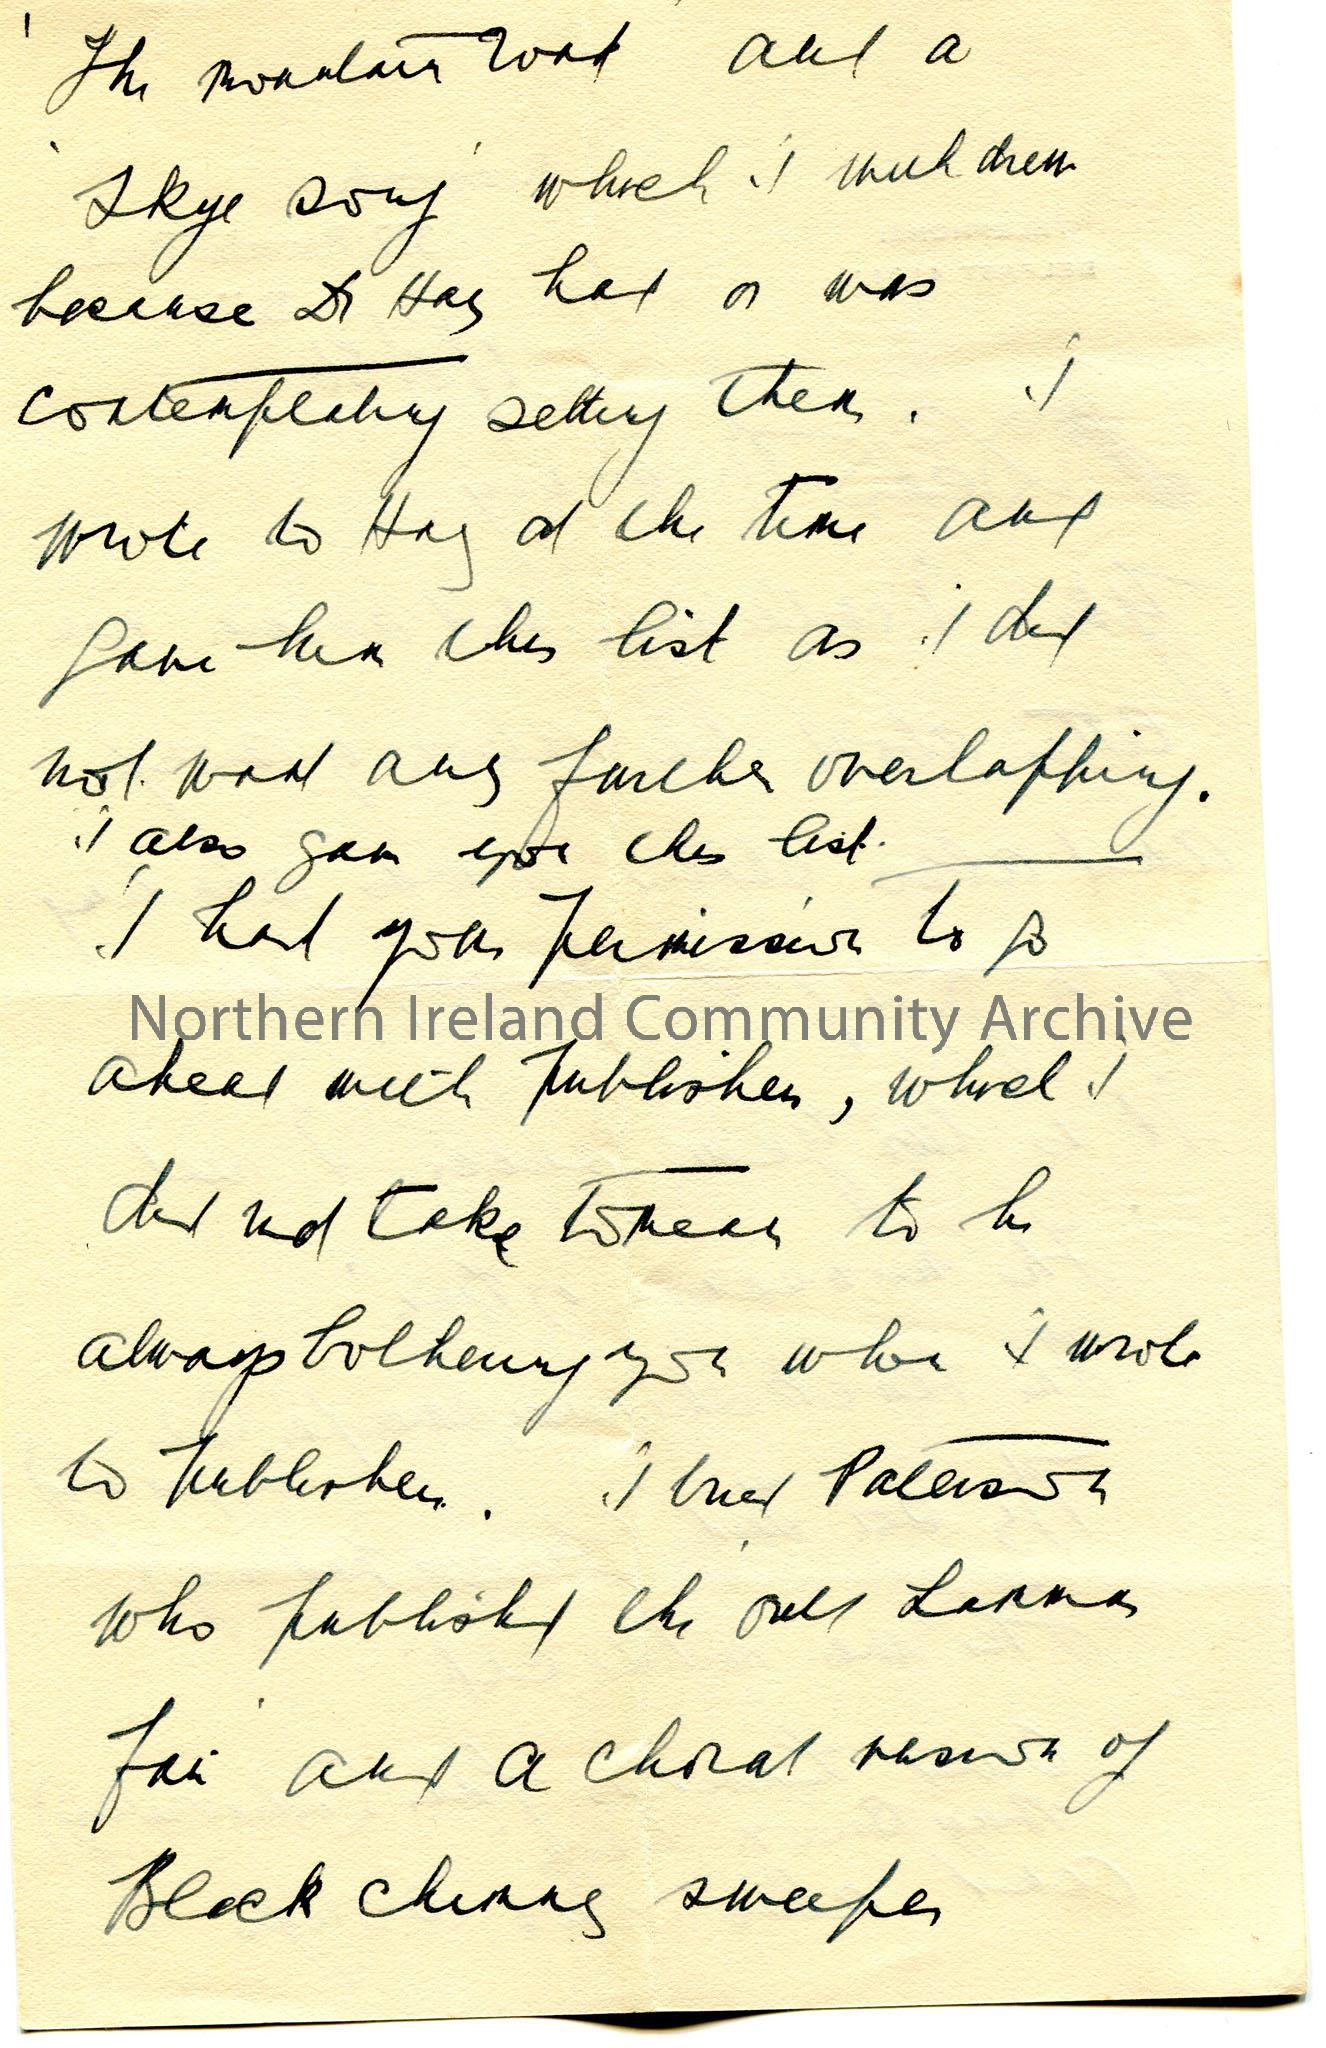 'The mountain Road and a
'Skye song' which I withdrew
because Dr Hay had or was
contemplating setting them. I
wrote to Hay at the time and
gave him this list as I did
not want any further overlapping.
I also gave you this list.
I had your permission to go
Northern Ireland Community Archive
ahead with publishers, which I
did not take to mean to be
always bothering you when I wrote
to publishers. I tried Paterson
who published the Lammas
fair' and a choral version of
Black chimney sweeper